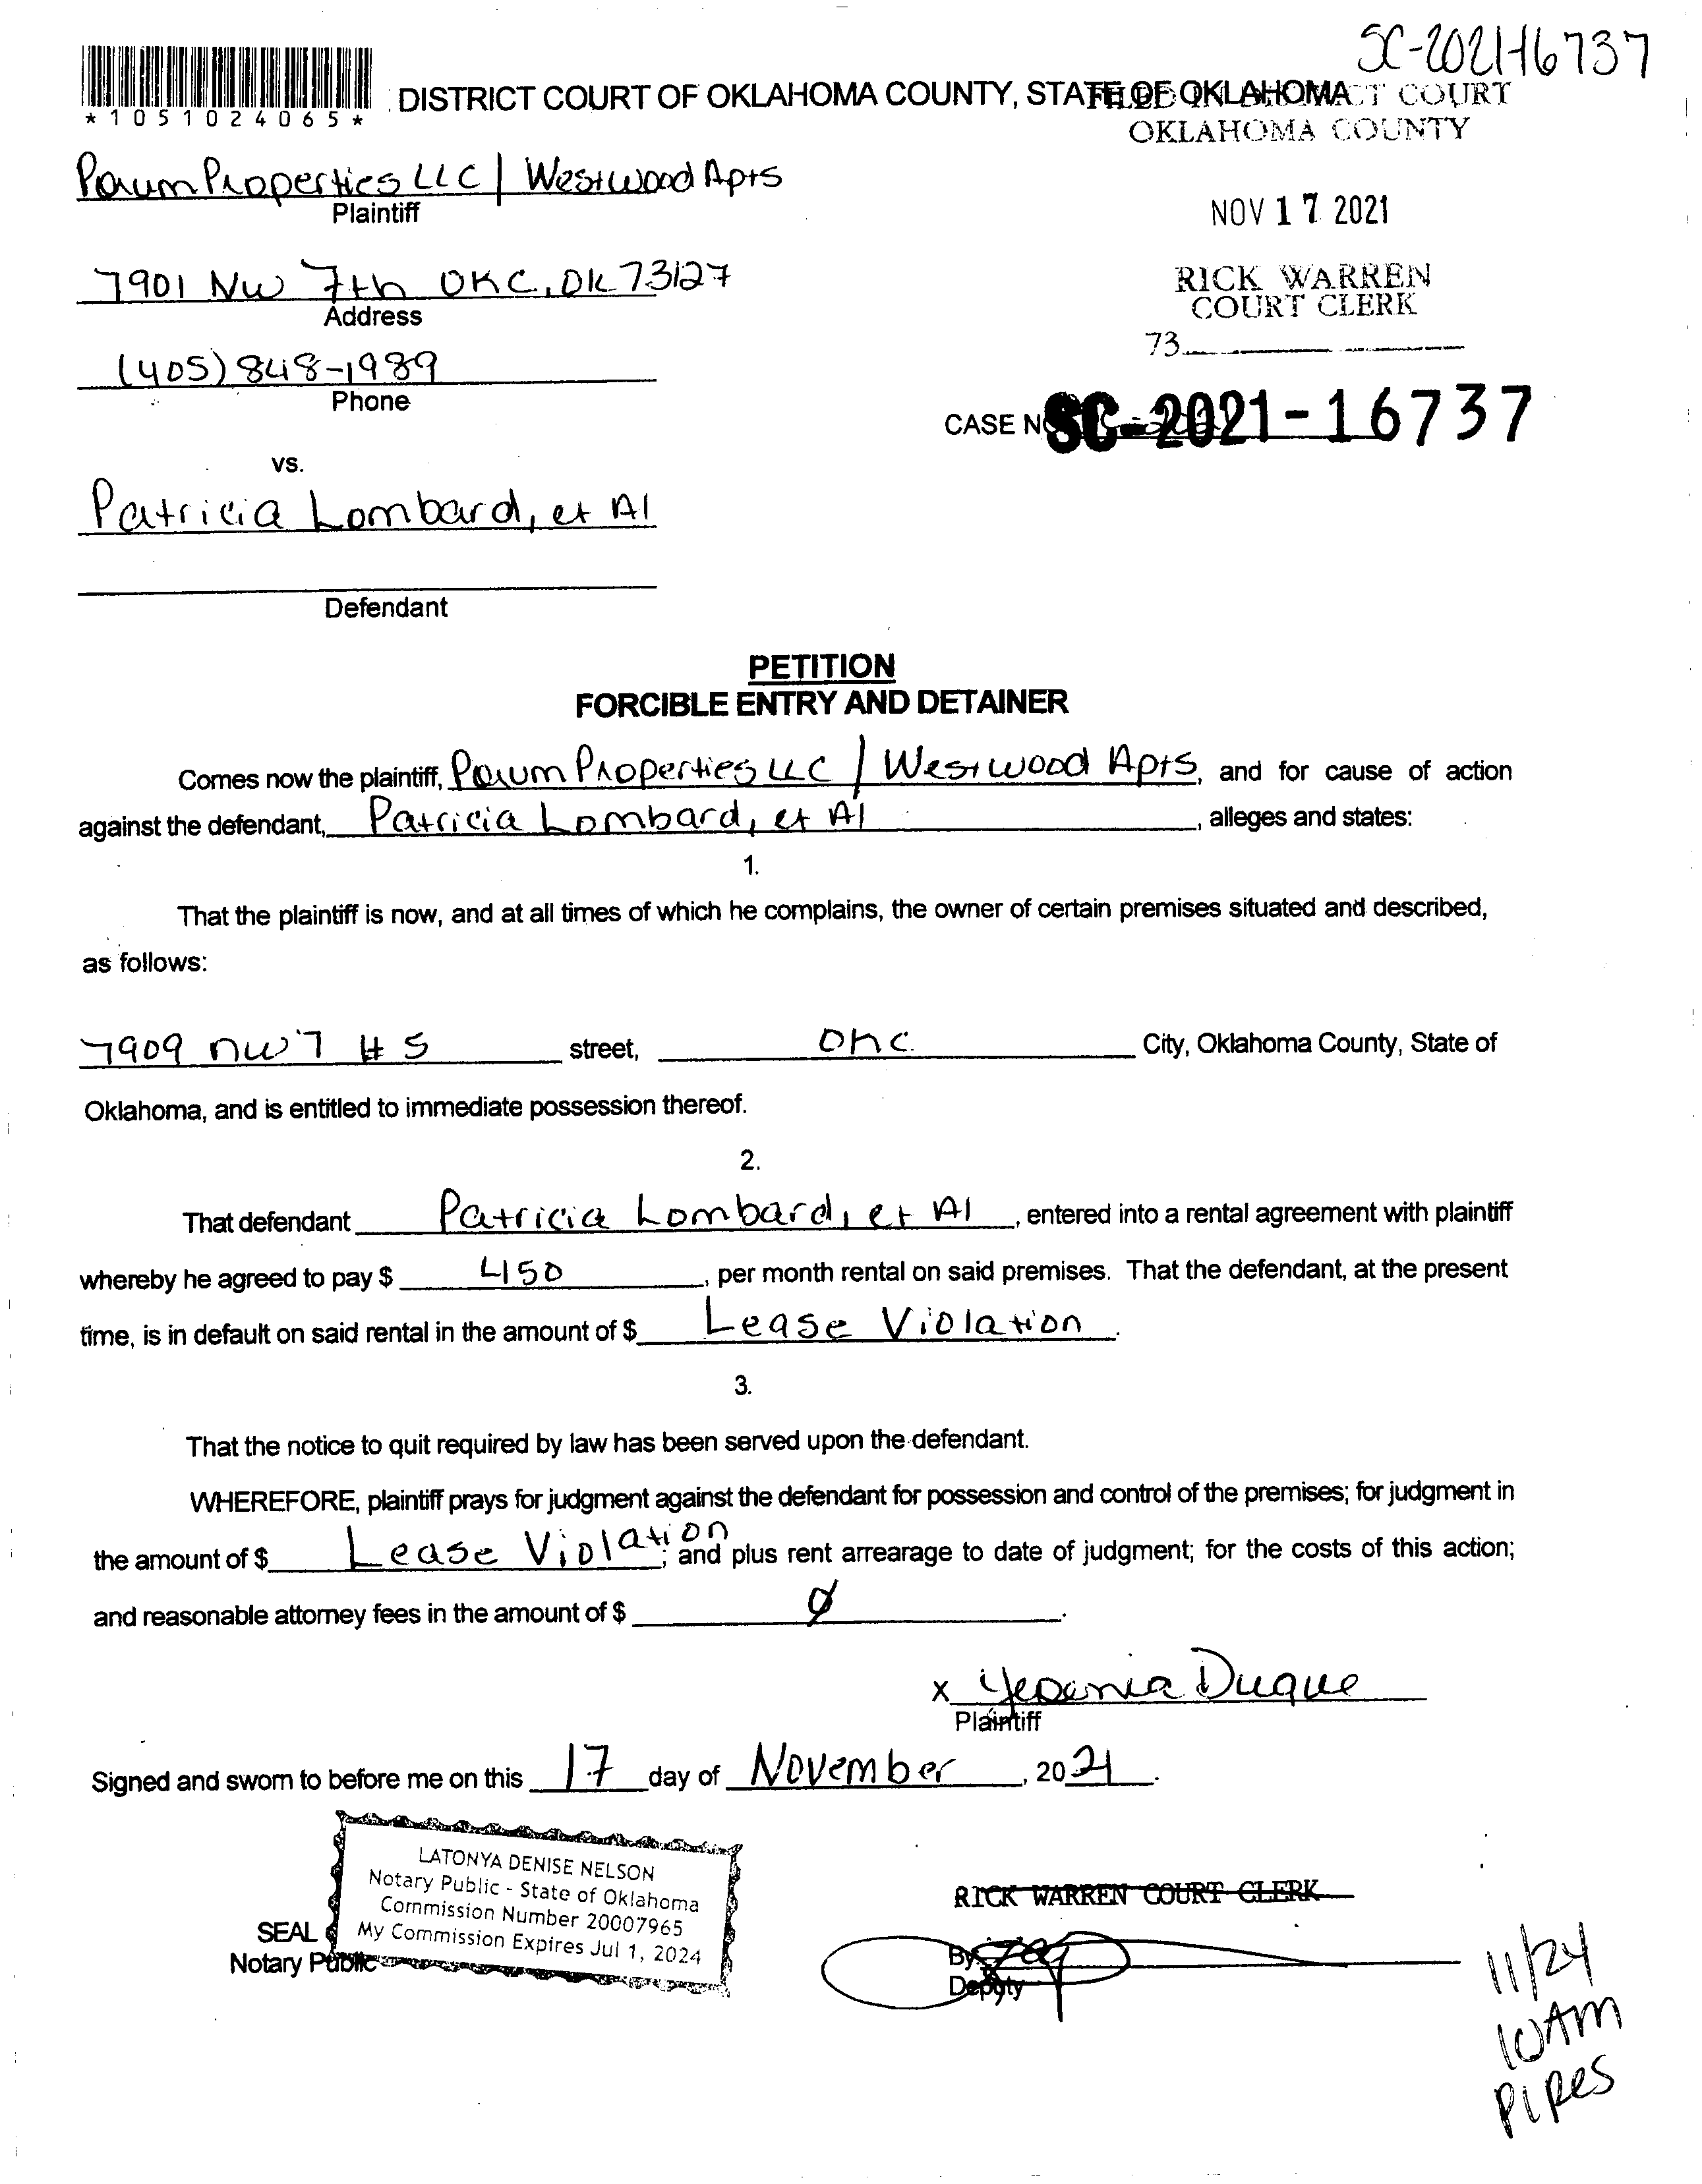 SC-2021-16737
*1051024065*
DISTRICT COURT OF OKLAHOMA COUNTY, STATE OF OKLAHOMA
FILED IN DISTRICT COURT
OKLAHOMA COUNTY
Paum Properties LLC | Westwood Apts
Plaintiff
NOV 17 2021
7901 NW 7th OKC, OK 73127
Address
RICK WARREN
COURT CLERK
73
(405) 848-1989
Phone
CASE NO. SC-2021-16737
vs.
Patricia Lombard, et Al
Defendant
PETITION
FORCIBLE ENTRY AND DETAINER
Comes now the plaintiff, Paum Properties LLC | Westwood Apts, and for cause of action
against the defendant, Patricia Lombard, et Al, alleges and states:
1.
That the plaintiff is now, and at all times of which he complains, the owner of certain premises situated and described,
as follows:
7909 NW 7 # 5 street, OKC City, Oklahoma County, State of
Oklahoma, and is entitled to immediate possession thereof.
2.
That defendant Patricia Lombard, et Al, entered into a rental agreement with plaintiff
whereby he agreed to pay $ 450, per month rental on said premises. That the defendant, at the present
time, is in default on said rental in the amount of $ Lease Violation.
3.
That the notice to quit required by law has been served upon the defendant.
WHEREFORE, plaintiff prays for judgment against the defendant for possession and control of the premises; for judgment in
the amount of $ Lease Violation; and plus rent arrearage to date of judgment; for the costs of this action;
and reasonable attorney fees in the amount of $ Ø.
x Yesenia Duque
Plaintiff
Signed and sworn to before me on this 17 day of November, 2021.
LATONYA DENISE NELSON
Notary Public - State of Oklahoma
Commission Number 20007965
My Commission Expires Jul 1, 2024
SEAL
Notary Public
RICK WARREN COURT CLERK
By
Deputy
11/24
10AM
Pipes